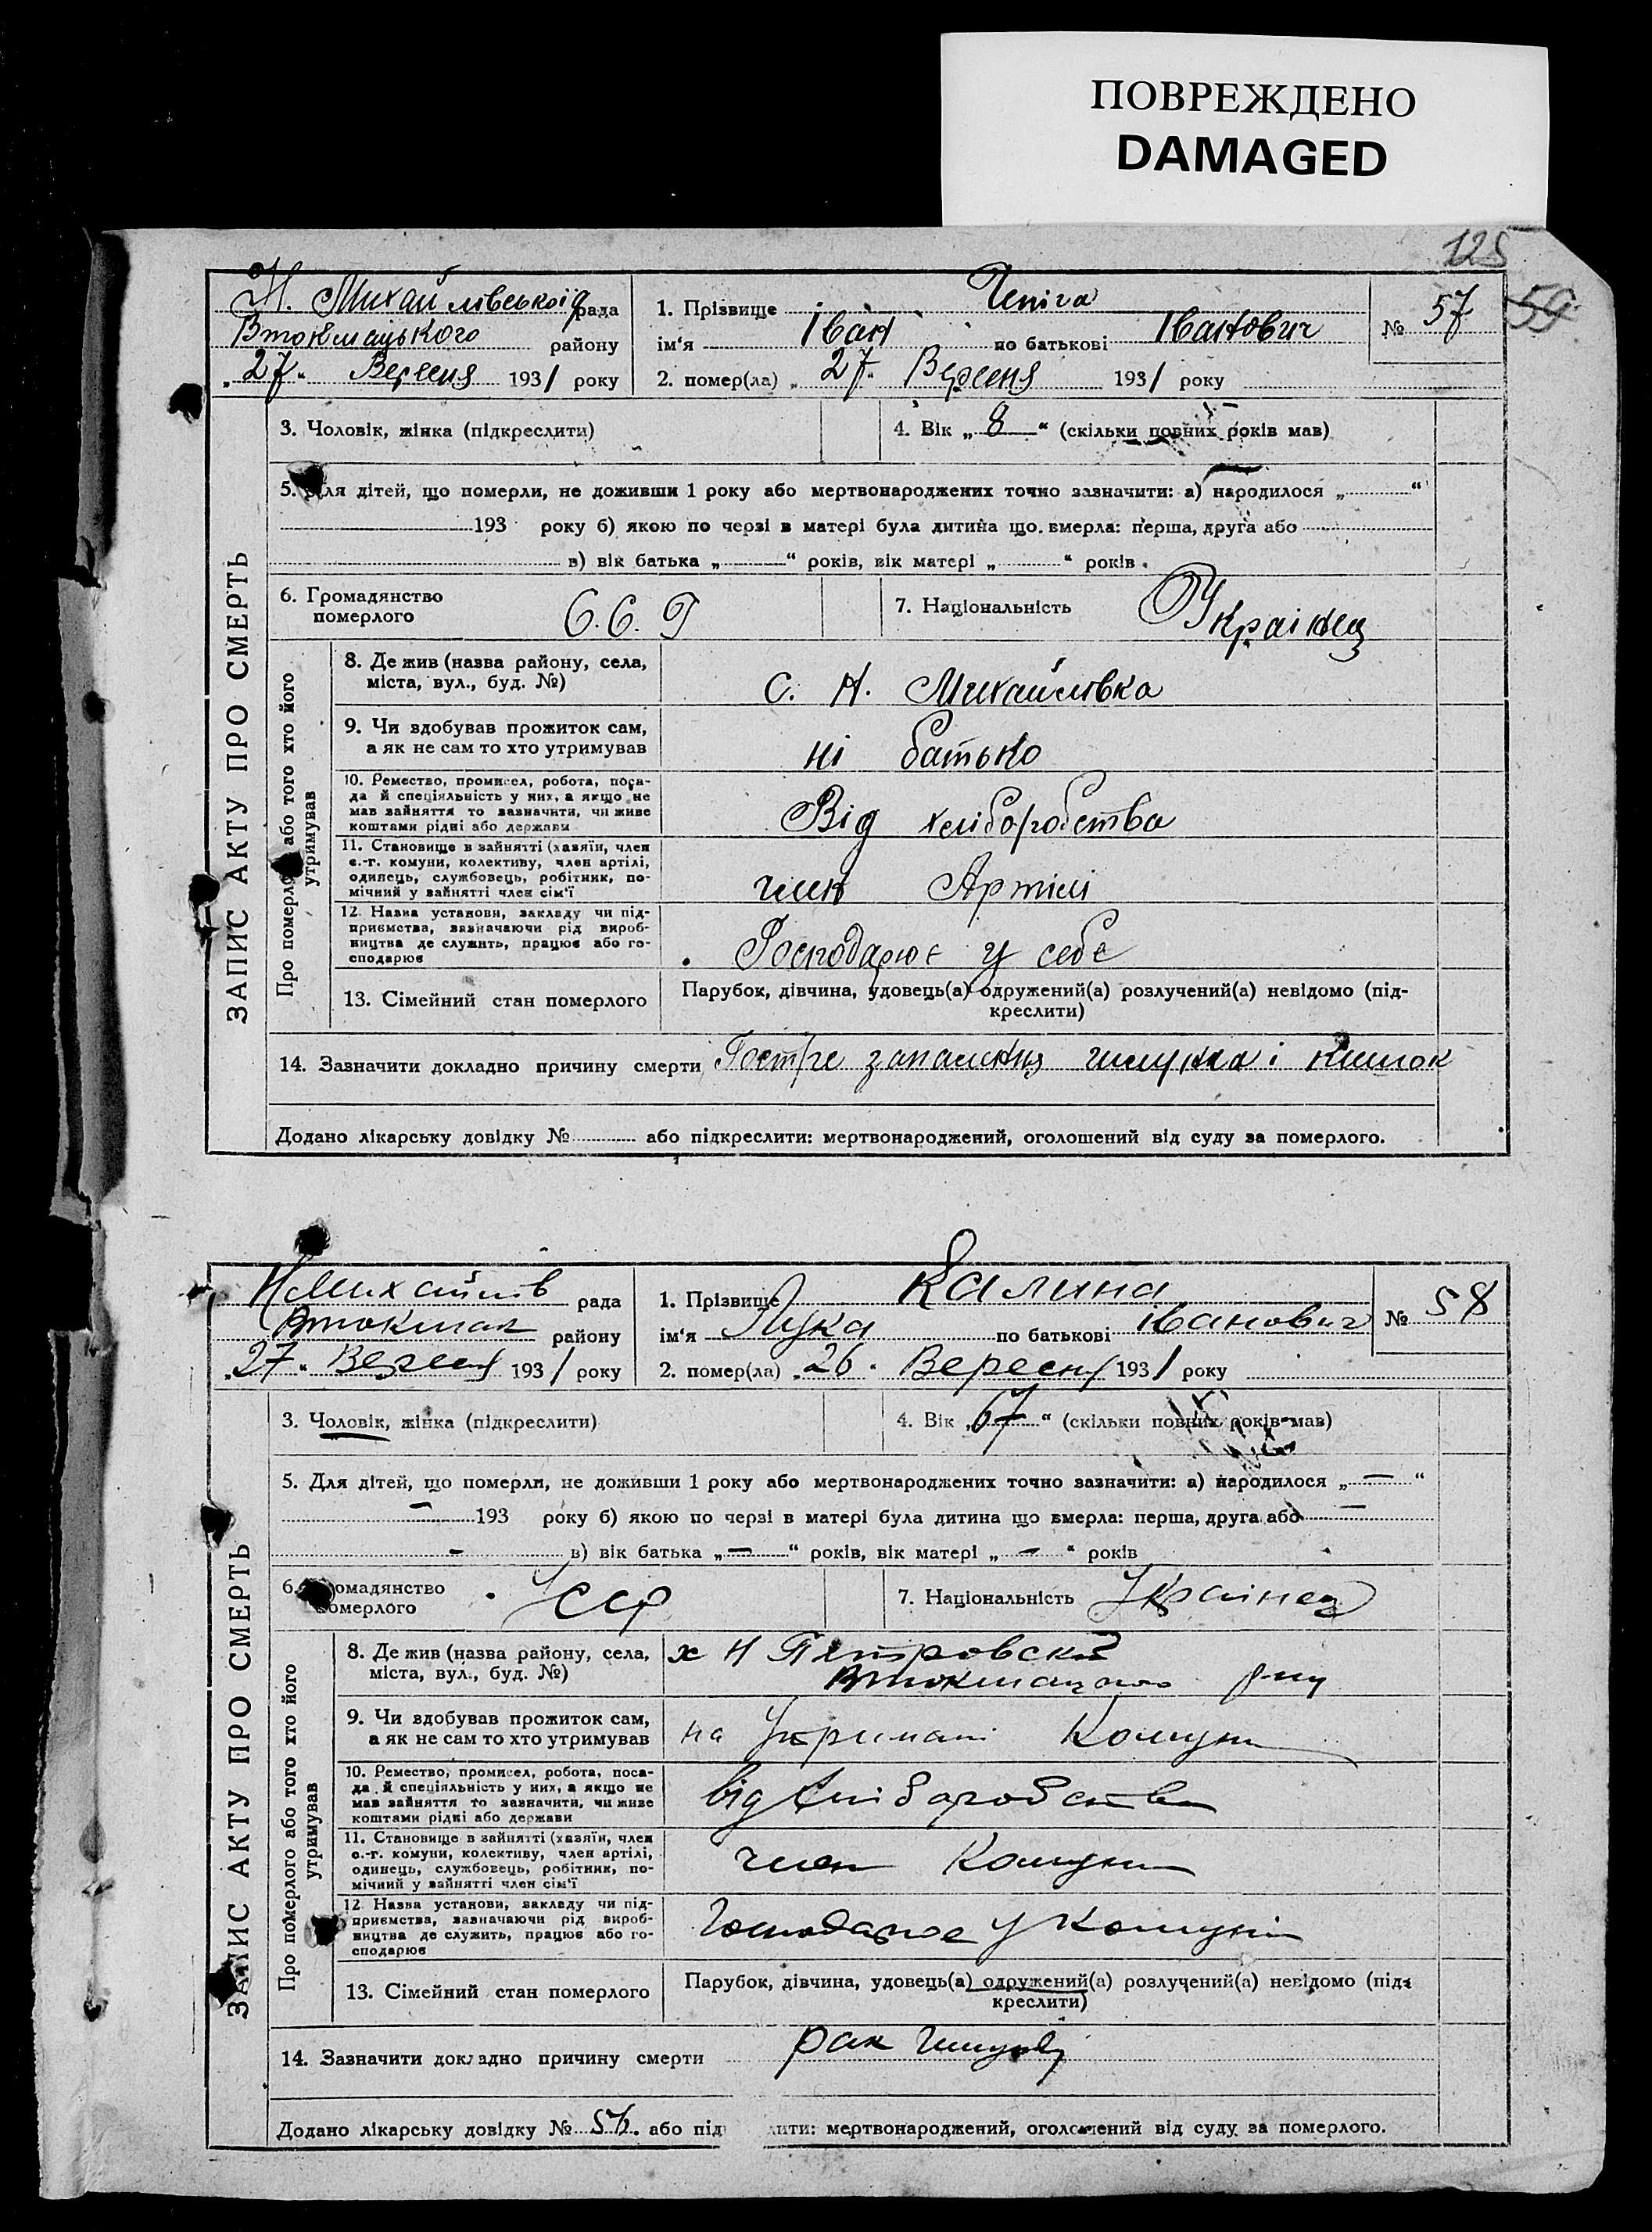 ПОВРЕЖДЕНО
DAMAGED
125
Н. Михайлівської рада
Втокмацького району
„27“ Вересня 1931 року
1. Прізвище Чепіга
ім'я Іван по батькові Іванович
2. помер(ла) „27“ Вересня 1931 року
№ 57
59
ЗАПИС АКТУ ПРО СМЕРТЬ
3. Чоловік, жінка (підкреслити)
4. Вік „8“ (скільки повних років мав)
5. Для дітей, що померли, не доживши 1 року або мертвонароджених точно зазначити: а) народилося „ “
193 року б) якою по черзі в матері була дитина що вмерла: перша, друга або
в) вік батька „ “ років, вік матері „ “ років
6. Громадянство
померлого
7. Національність Українец
Про померлого або того хто його
утримував
8. Де жив (назва району, села,
міста, вул., буд. №)
с. Н. Михайлівка
9. Чи здобував прожиток сам,
а як не сам то хто утримував
ні батько
10. Ремество, промисел, робота, поса-
да й спеціяльність у них, а якщо не
мав зайняття то зазначити, чи живе
коштами рідні або держави
Від хліборобства
11. Становище в зайнятті (хазяїн, член
с.-г. комуни, колективу, член артілі,
одинець, службовець, робітник, по-
мічний у зайнятті член сім'ї
член Артілі
12. Назва установи, закладу чи під-
приємства, зазначаючи рід вироб-
ництва де служить, працює або го-
сподарює
Господарює у себе
13. Сімейний стан померлого
Парубок, дівчина, удовець(а) одружений(а) розлучений(а) невідомо (під-
креслити)
14. Зазначити докладно причину смерти Гостре запалення шлунка і кишок
Додано лікарську довідку № або підкреслити: мертвонароджений, оголошений від суду за померлого.
НМихайлів рада
Втокмак району
„27“ Вересня 1931 року
1. Прізвище Калина
ім'я Лука по батькові Іванович
2. помер(ла) „26“ Вересня 1931 року
№ 58
ЗАПИС АКТУ ПРО СМЕРТЬ
3. Чоловік, жінка (підкреслити)
4. Вік „67“ (скільки повних років мав)
5. Для дітей, що померли, не доживши 1 року або мертвонароджених точно зазначити: а) народилося „—“
— 193 року б) якою по черзі в матері була дитина що вмерла: перша, друга або —
— в) вік батька „—“ років, вік матері „—“ років
6. Громадянство
померлого
УССР
7. Національність Українец
Про померлого або того хто його
утримував
8. Де жив (назва району, села,
міста, вул., буд. №)
х Н Петровский
Втокмацького р-ну
9. Чи здобував прожиток сам,
а як не сам то хто утримував
на Утримані Комуни
10. Ремество, промисел, робота, поса-
да й спеціяльність у них, а якщо не
мав зайняття то зазначити, чи живе
коштами рідні або держави
від хліборобства
11. Становище в зайнятті (хазяїн, член
с.-г. комуни, колективу, член артілі,
одинець, службовець, робітник, по-
мічний у зайнятті член сім'ї
член Комуни
12. Назва установи, закладу чи під-
приємства, зазначаючи рід вироб-
ництва де служить, працює або го-
сподарює
Господарює у Комуні
13. Сімейний стан померлого
Парубок, дівчина, удовець(а) одружений(а) розлучений(а) невідомо (під-
креслити)
14. Зазначити докладно причину смерти рак
Додано лікарську довідку № 56. або під лити: мертвонароджений, оголошений від суду за померлого.